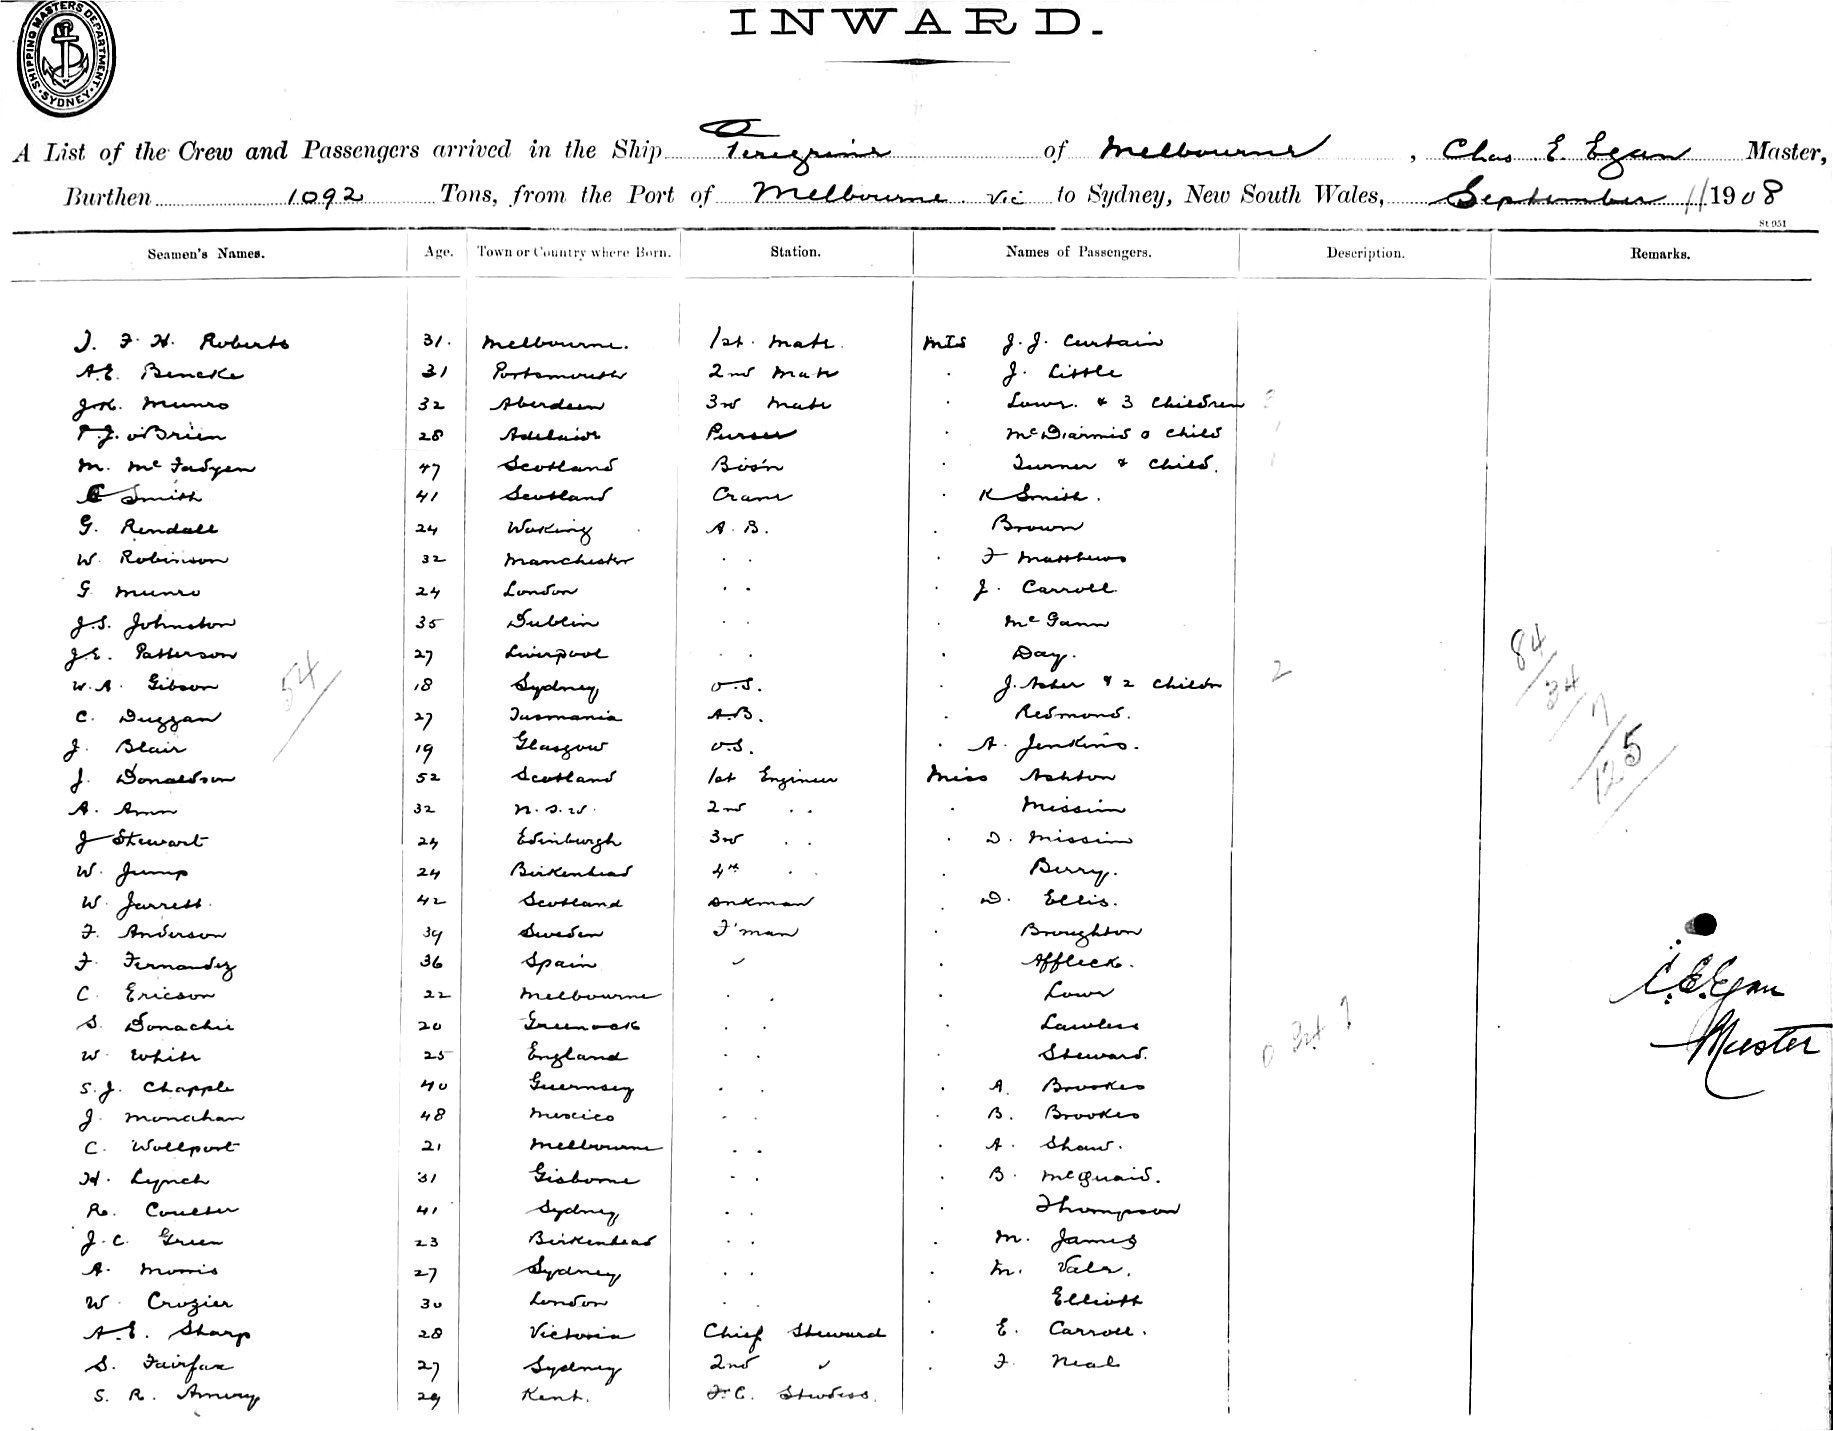 SHIPPING MASTERS DEPARTMENT. SYDNEY.
INWARD.
A List of the Crew and Passengers arrived in the Ship Peregrine of Melbourne, Chas E. Egan Master,
Burthen 1092 Tons, from the Port of Melbourne Vic to Sydney, New South Wales, September 11 1908
St 951
Seamen's Names. Age. Town or Country where Born. Station. Names of Passengers. Description. Remarks.
J. F. H. Roberts 31. Melbourne. 1st Mate. Mrs J. J. Curtain
A.E. Bencke 31 Portsmouth 2nd Mate . J. Little
J.H. Munro 32 Aberdeen 3rd Mate . Lowe. & 3 Children 3
T.J. O'Brien 28 Adelaide Purser . McDiarmid & Child 1
M. McFadyen 47 Scotland Bos'n . Turner & Child. 1
C Smith 41 Scotland Crane . K Smith.
G. Rendall 24 Woking A. B. . Brown
W. Robinson 32 Manchester . . . F Matthews
G. Munro 24 London . . . J. Carroll
J.S. Johnston 35 Dublin . . . McGann
J.E. Patterson 27 Liverpool . . . Day.
W.A. Gibson 18 Sydney O.S. . J. Asher & 2 Childn 2
C. Duggan 27 Tasmania A.B. . Redmond.
J. Blair 19 Glasgow O.S. . A. Jenkins.
J. Donaldson 52 Scotland 1st Engineer Miss Ashton
A. Ann 32 N.S.W. 2nd . . . Missim
J Stewart 24 Edinburgh 3rd . . . D. Missim
W. Jump 24 Birkenhead 4th . . . Berry.
W. Jarrett. 42 Scotland Dnkman . D. Ellis.
F. Anderson 39 Sweden F'man . Broughton
F. Fernandez 36 Spain " . Affleck.
C. Ericson 22 Melbourne . . . Lowe
S. Donachie 20 Greenock . . . Lawless
W. White 25 England . . . Steward.
S.J. Chapple 40 Guernsey . . . A. Brookes
J. Monahan 48 Mexico . . . B. Brookes
C. Wollport 21 Melbourne . . . A. Shaw.
H. Lynch 31 Gisborne . . . B. McQuaid.
R. Coulter 41 Sydney . . . Thompson
J.C. Green 23 Birkenhead . . . M. James
A. Morris 27 Sydney . . . M. Vale.
W. Crozier 30 London . . . Elliott
A.E. Sharp 28 Victoria Chief Steward . E. Carroll.
S. Fairfax 27 Sydney 2nd " . F. Neal
S. R. Amery 29 Kent. F.C. Stewdess.
54
84/34/7/125
0 34 7
C.E. Egan
Master